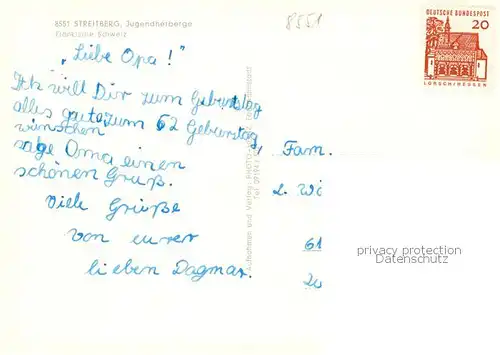 8551 STREITBERG, Jugendherberge
Fränkische Schweiz
8551
DEUTSCHE BUNDESPOST
20
LORSCH/HESSEN
„Liebe Opa!"
Ich will Dir zum Geburtstag
alles gute zum 62 Geburtstag,
wünschen
sage Oma einen
schönen Gruß.
Viele Grüße
von eurer
lieben Dagmar.
Fam.
61
privacy protection
Datenschutz
Aufnahmen und Verlag: PHOTO
Tel. 09194